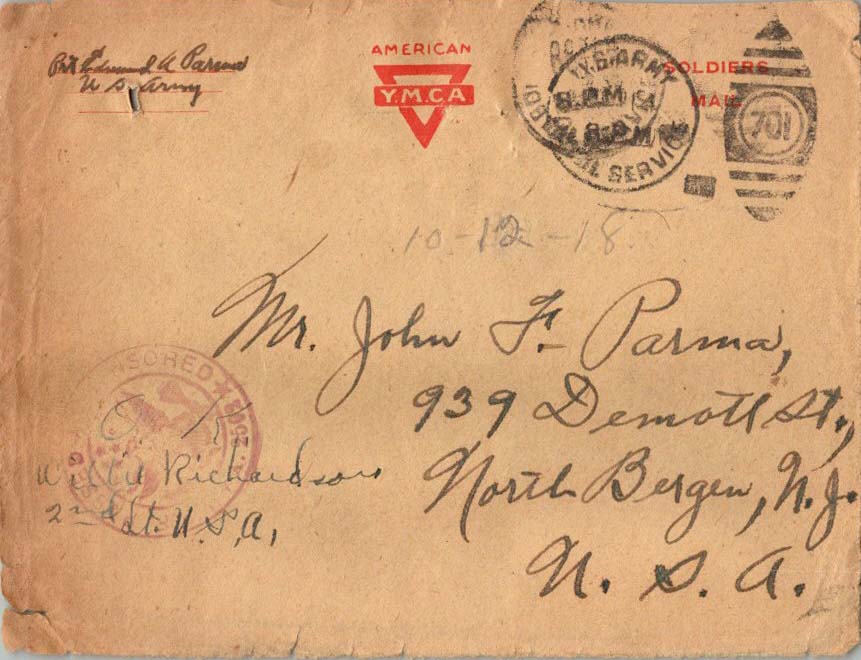 Pvt Edmund A Parma
U S Army
AMERICAN
Y.M.C.A
SOLDIERS
MAIL
U.S. ARMY
POSTAL SERVICE
8 PM
701
10-12-18
Mr. John F. Parma,
939 Demott St.,
North Bergen, N.J.
U. S. A.
CENSORED
O. K.
Willie Richardson
2nd Lt. U.S.A.